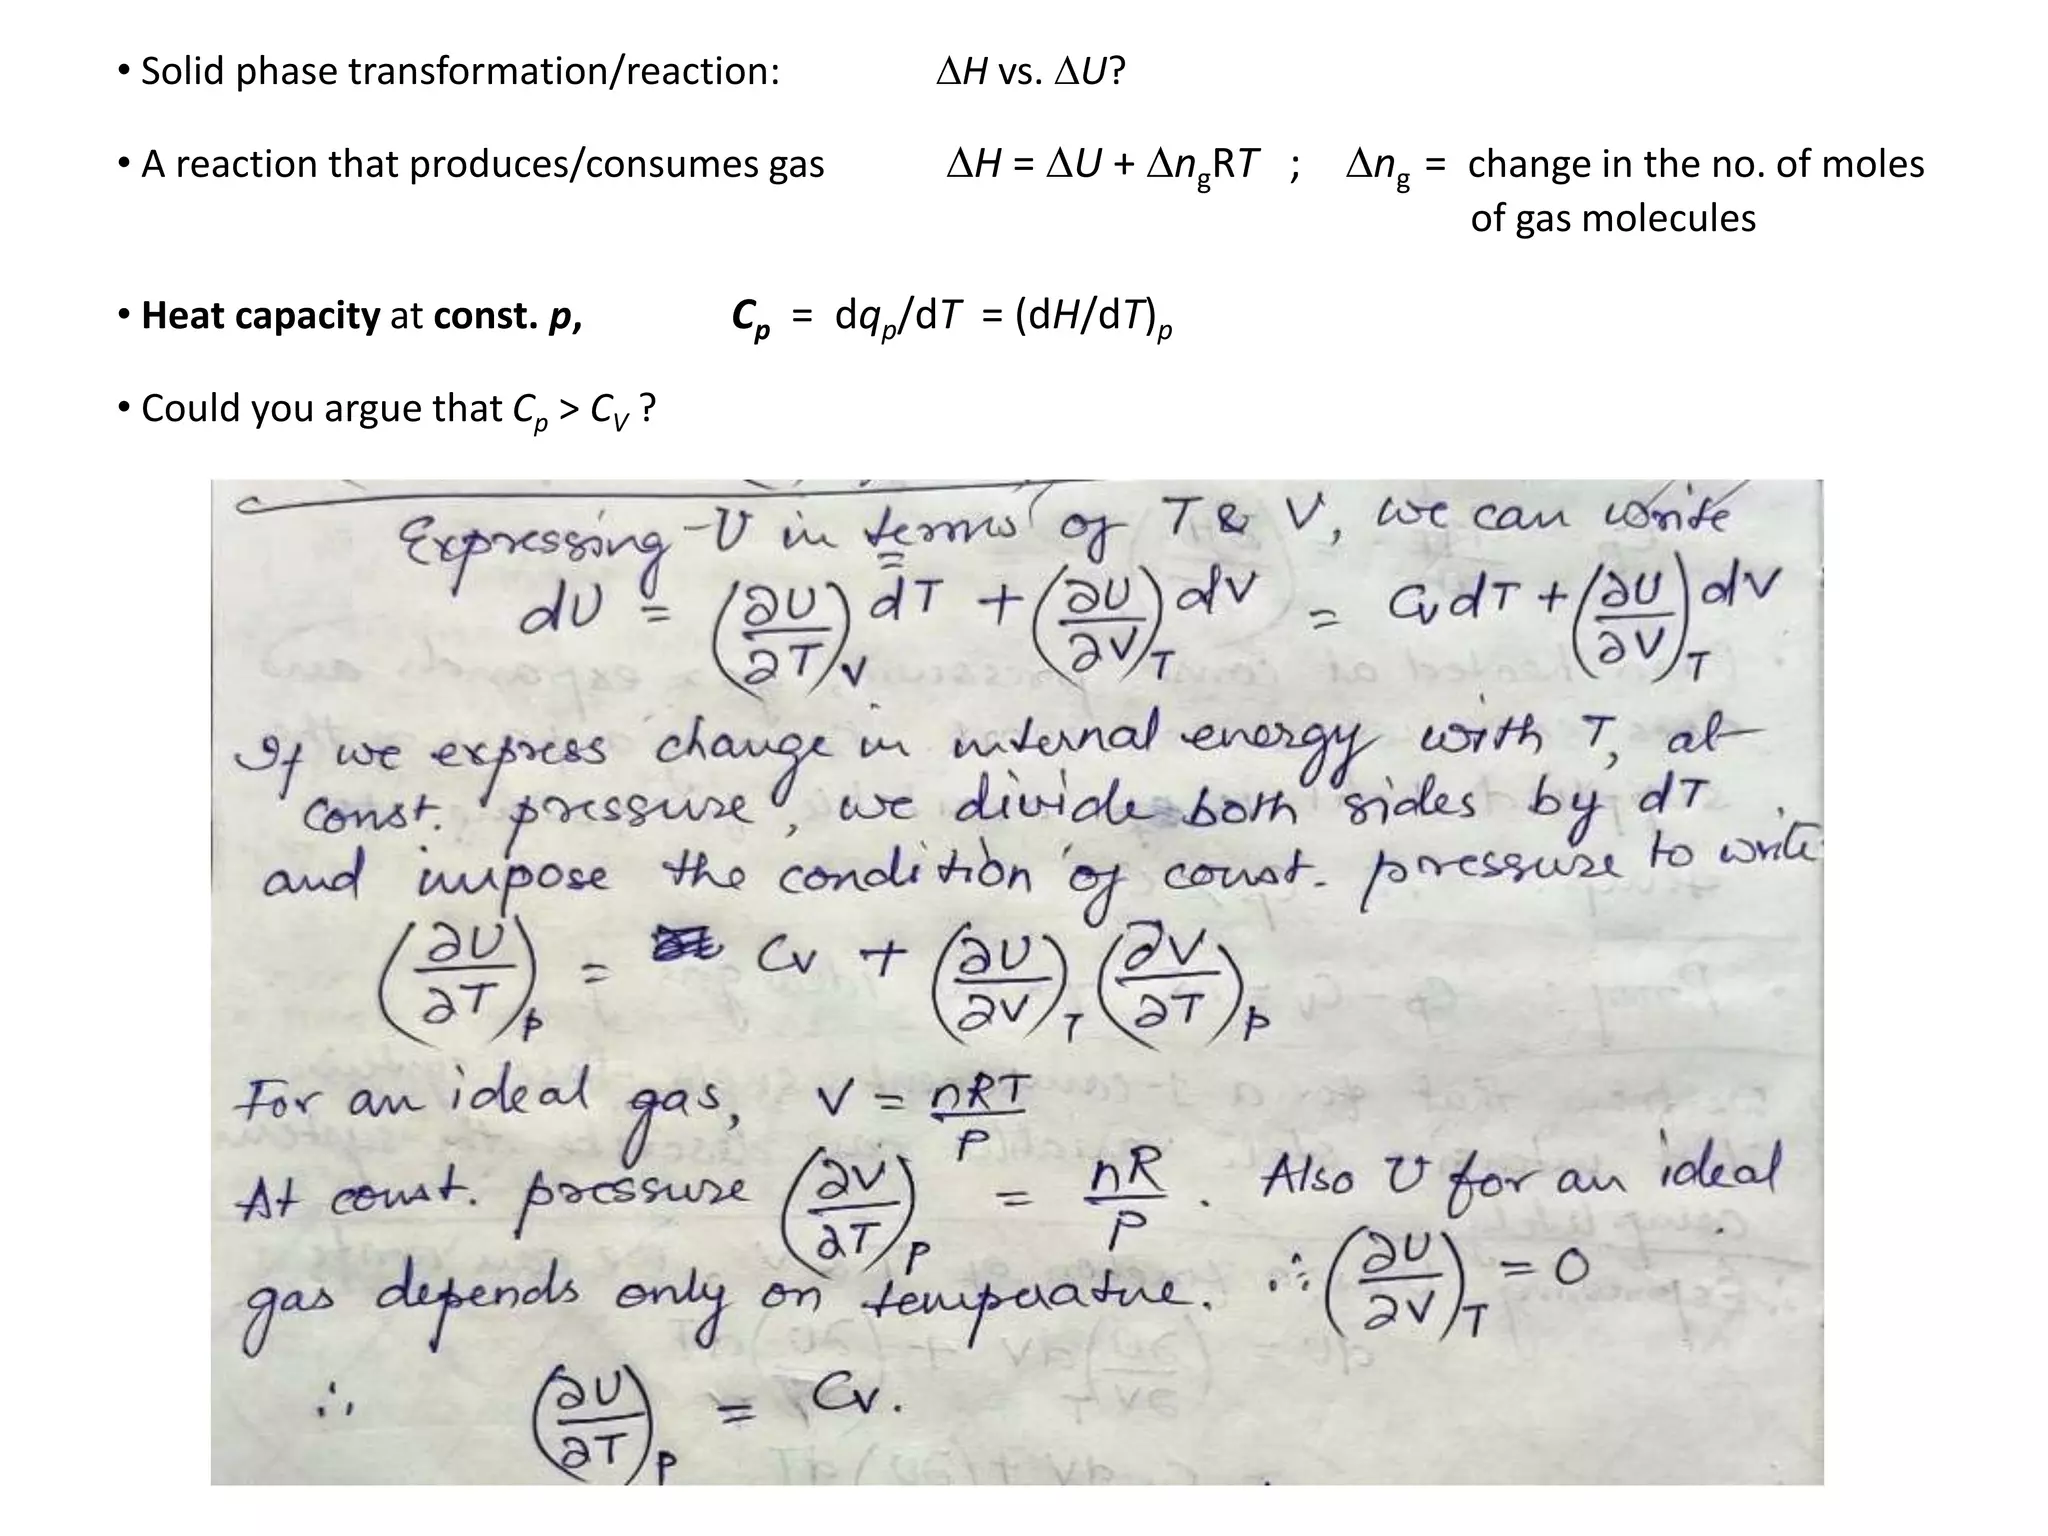 • Solid phase transformation/reaction: ΔH vs. ΔU?
• A reaction that produces/consumes gas ΔH = ΔU + Δn_gRT ; Δn_g = change in the no. of moles
of gas molecules
• Heat capacity at const. p, C_p = dq_p/dT = (dH/dT)_p
• Could you argue that C_p > C_V ?
Expressing U in terms of T & V, we can write
dU = (∂U/∂T)_V dT + (∂U/∂V)_T dV = C_V dT + (∂U/∂V)_T dV
If we express change in internal energy with T, at
const. pressure, we divide both sides by dT
and impose the condition of const. pressure to write
(∂U/∂T)_P = C_V + (∂U/∂V)_T (∂V/∂T)_P
For an ideal gas, V = nRT/P
At const. pressure (∂V/∂T)_P = nR/P. Also U for an ideal
gas depends only on temperature. ∴ (∂U/∂V)_T = 0
∴ (∂U/∂T)_P = C_V.